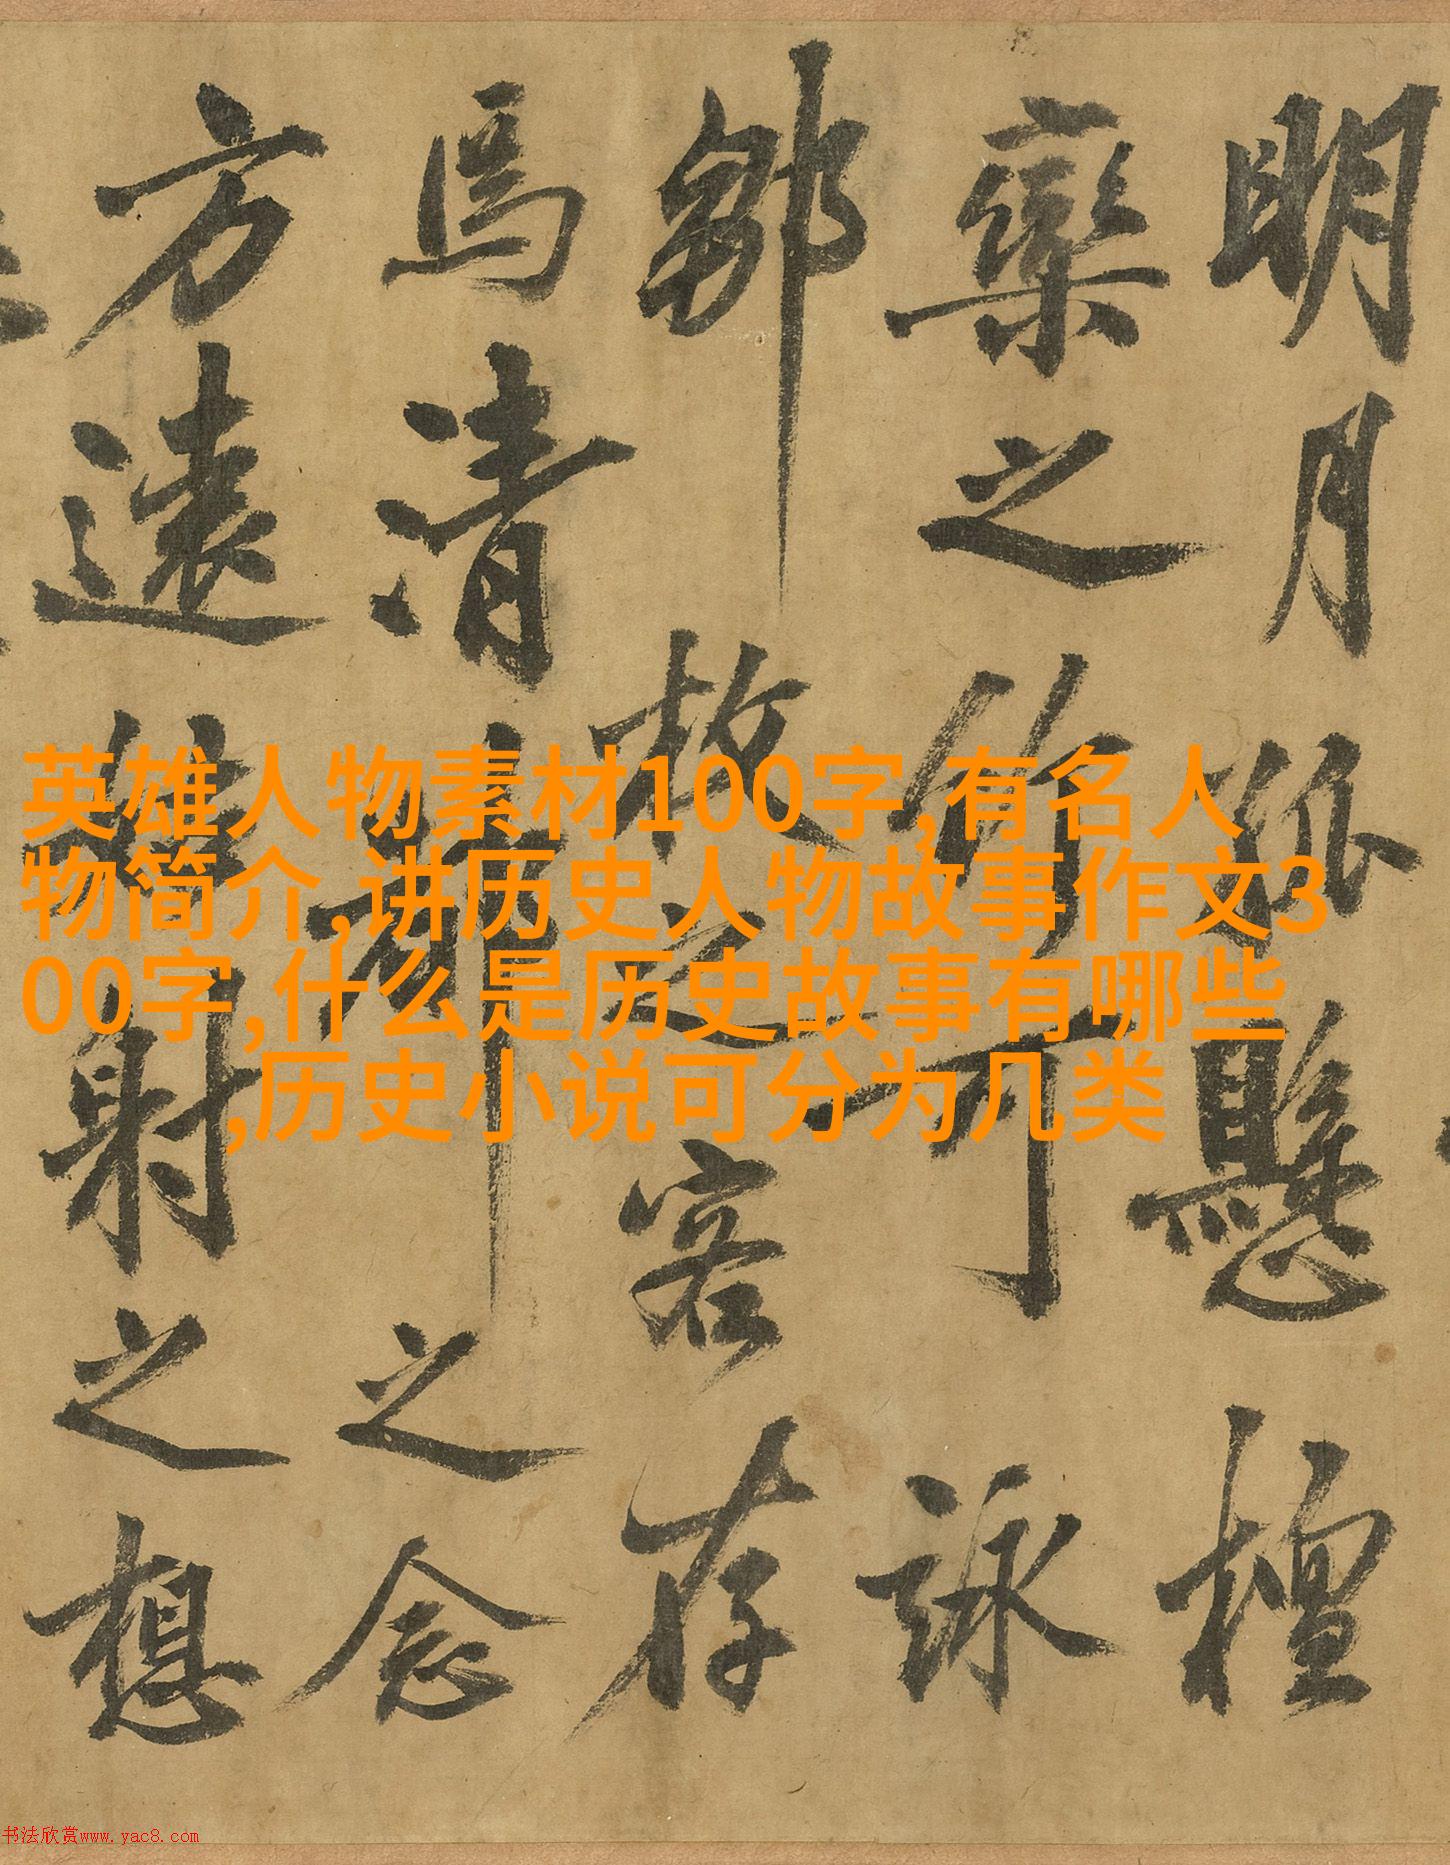 明月孤懸檀
欒之作可詠
鄒 故之客存
馬清 之念
方遠 射之想
英雄人物素材100字,有名人
物简介,讲历史人物故事作文3
00字,什么是历史故事有哪些
,历史小说可分为几类
书法欣赏www.yac8.com